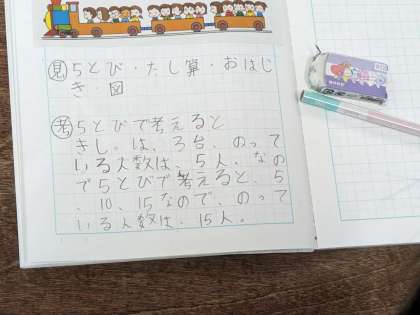 見 5とび・たし算・おはじ
き・図
考 5とびで考えると
きし。は、3台、のって
いる人数は、5人、なの
で5とびで考えると、5
、10、15なので、のって
いる人数は、15人。